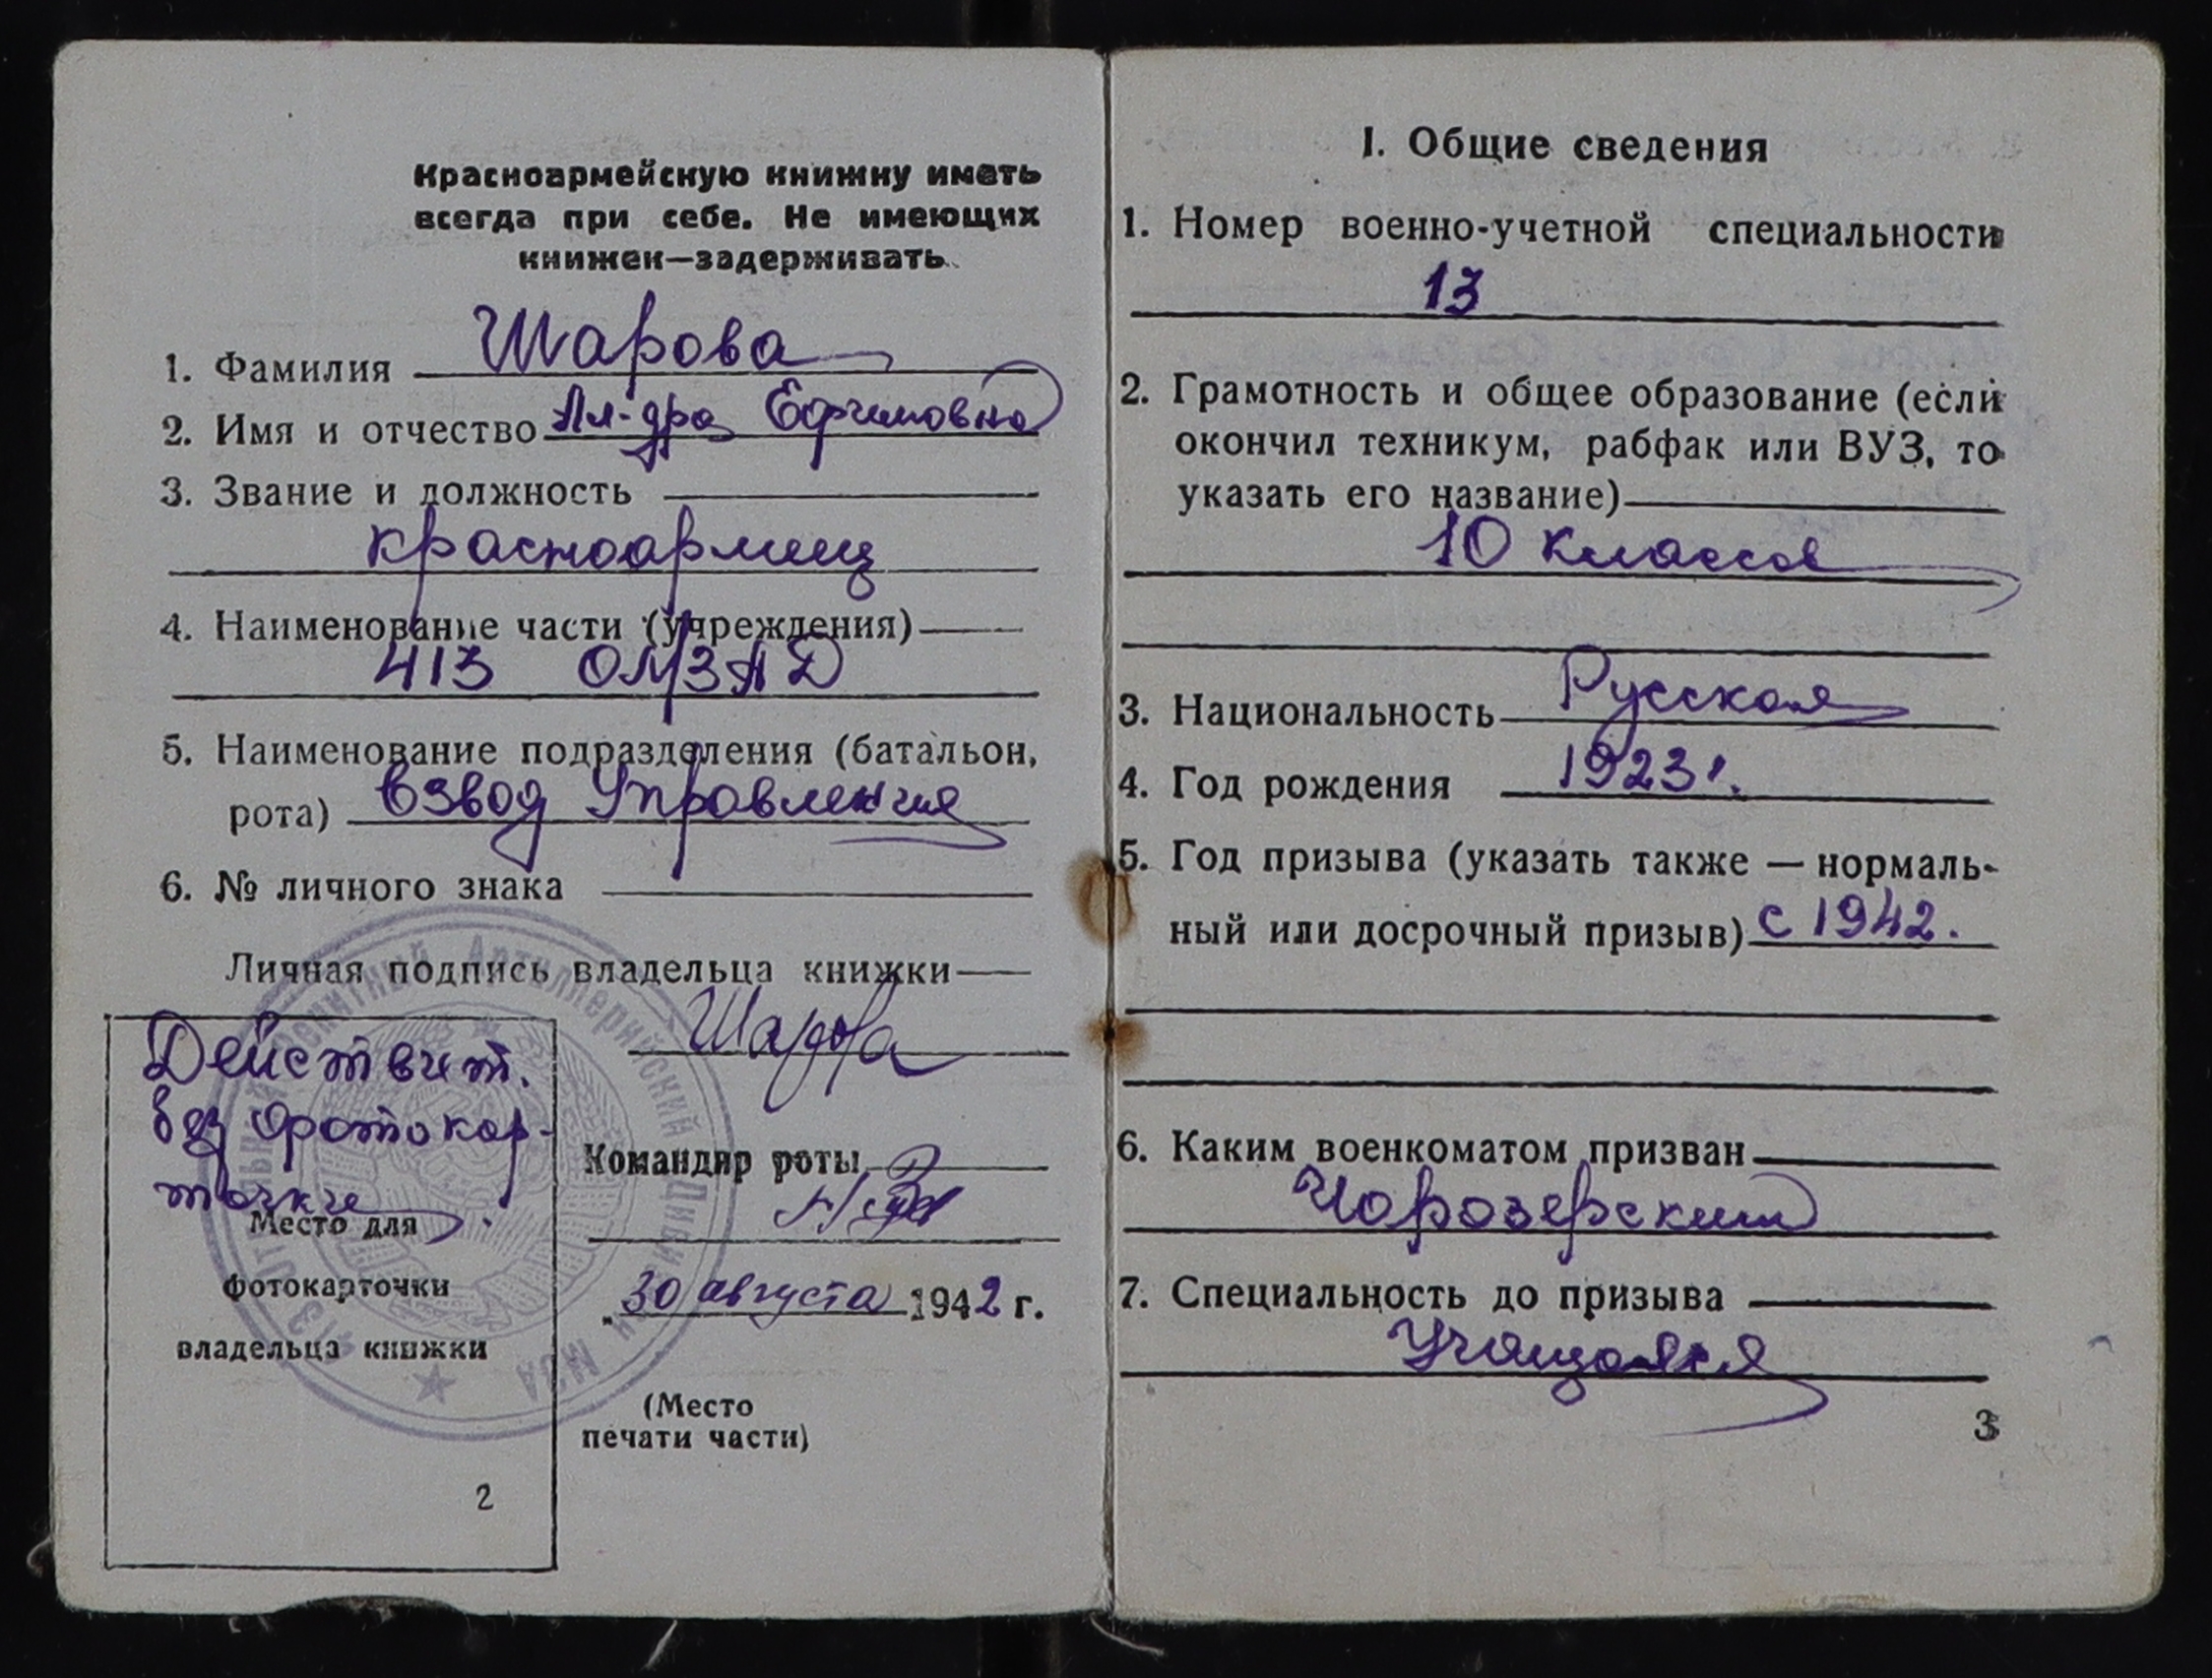 Красноармейскую книжку иметь
всегда при себе. Не имеющих
книжек—задерживать.
1. Фамилия Шарова
2. Имя и отчество Ал-дра Ефимовна
3. Звание и должность
красноармеец
4. Наименование части (учреждения)
413 ОМЗАД
5. Наименование подразделения (батальон,
рота) Взвод Управления
6. № личного знака
Личная подпись владельца книжки
Шарова
Действит.
без фотокар-
точки.
Место для
фотокарточки
владельца книжки
Командир роты
30 августа 1942 г.
(Место
печати части)
2
Зенитный Артиллерийский Дивизион МЗА
413
I. Общие сведения
1. Номер военно-учетной специальности
13
2. Грамотность и общее образование (если
окончил техникум, рабфак или ВУЗ, то
указать его название)
10 классов
3. Национальность Русская
4. Год рождения 1923 г.
5. Год призыва (указать также — нормаль-
ный или досрочный призыв) с 1942.
6. Каким военкоматом призван
Чарозерский
7. Специальность до призыва
Учащаяся
3